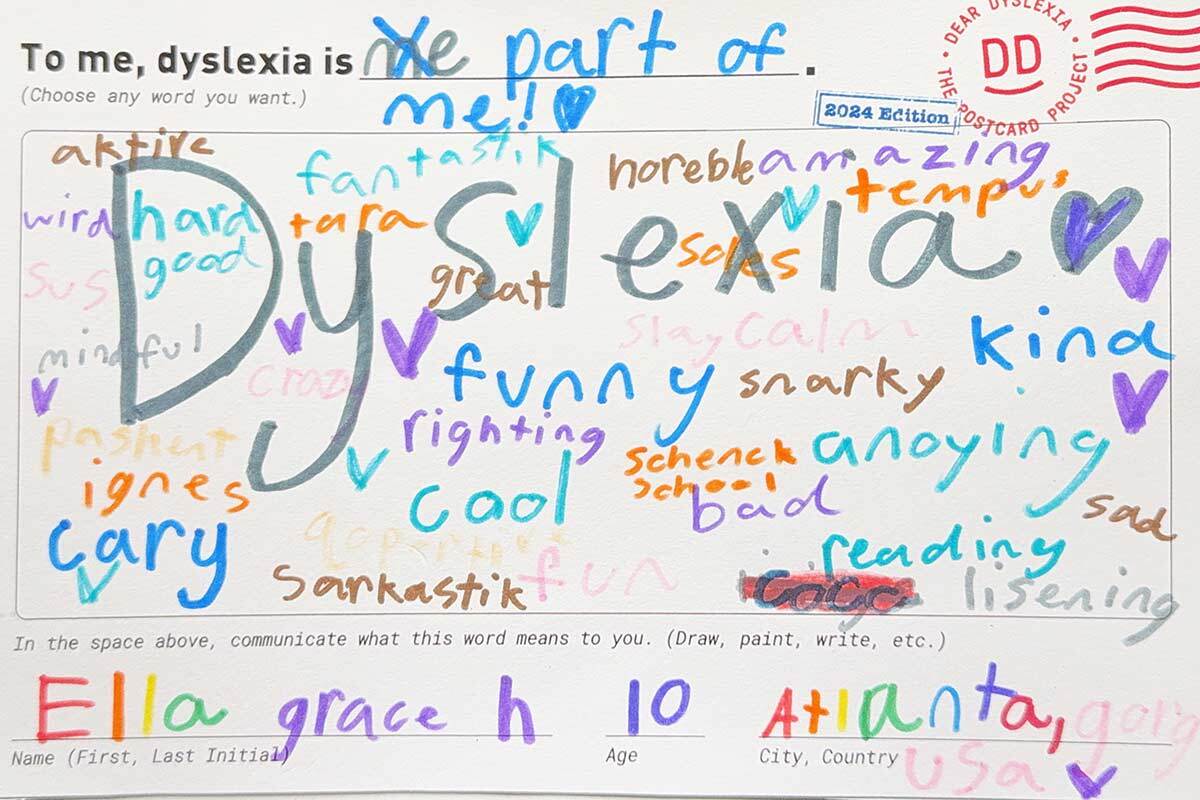 To me, dyslexia is me part of .
(Choose any word you want.)
me!
DEAR DYSLEXIA
THE POSTCARD PROJECT
DD
2024 Edition
Dyslexia
aktive
fantastik
horeble
amazing
wird
hard
tara
tempus
good
soles
sus
great
mindful
slay
calm
kind
crazy
funny
snarky
pashent
righting
schenck
school
anoying
ignes
cool
bad
sad
cary
reading
sarkastik
fun
lisening
In the space above, communicate what this word means to you. (Draw, paint, write, etc.)
Ella grace h 10 Atlanta,
Name (First, Last Initial) Age City, Country usa